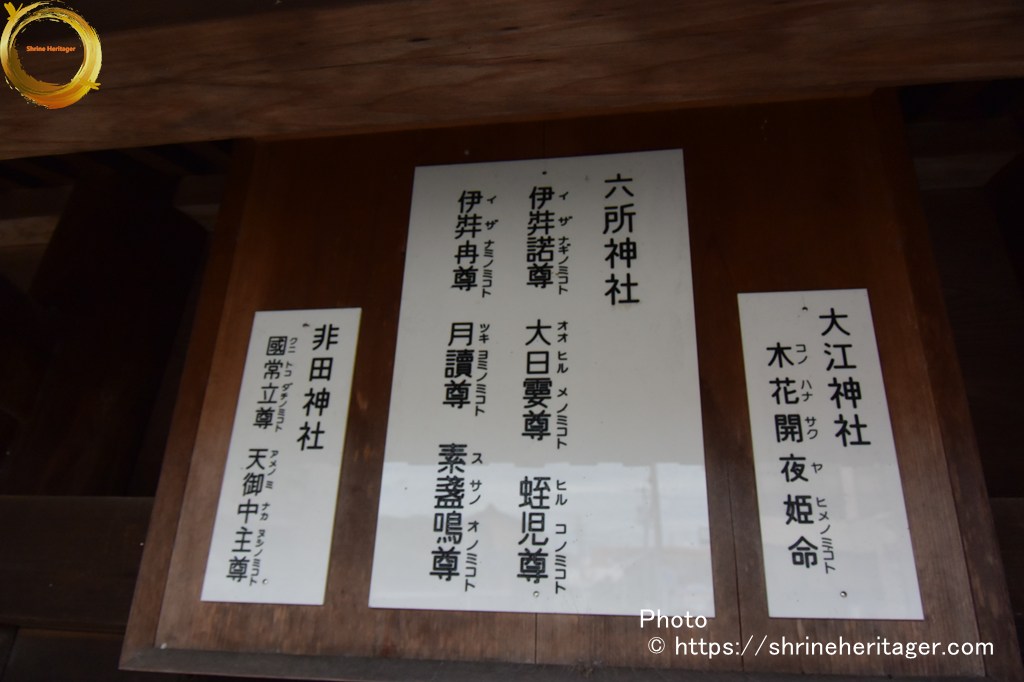 Shrine Heritager
大江神社
木花開夜姫命
コノ ハナ サク ヤ ヒメノミコト
六所神社
伊弉諾尊 大日孁尊 蛭児尊
イ ザ ナギノミコト オオ ヒル メノミコト ヒル コ ノミコト
伊弉冉尊 月讀尊 素盞鳴尊
イ ザ ナミノミコト ツキ ヨミノミコト ス サノ オ ノミコト
非田神社
國常立尊 天御中主尊
クニ トコ ダチノミコト アメノ ミ ナカ ヌシノミコト
Photo
© https://shrineheritager.com